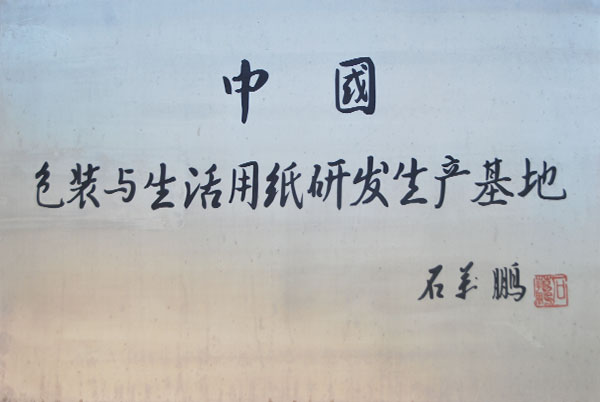 中國
包装与生活用纸研发生产基地
石万鹏